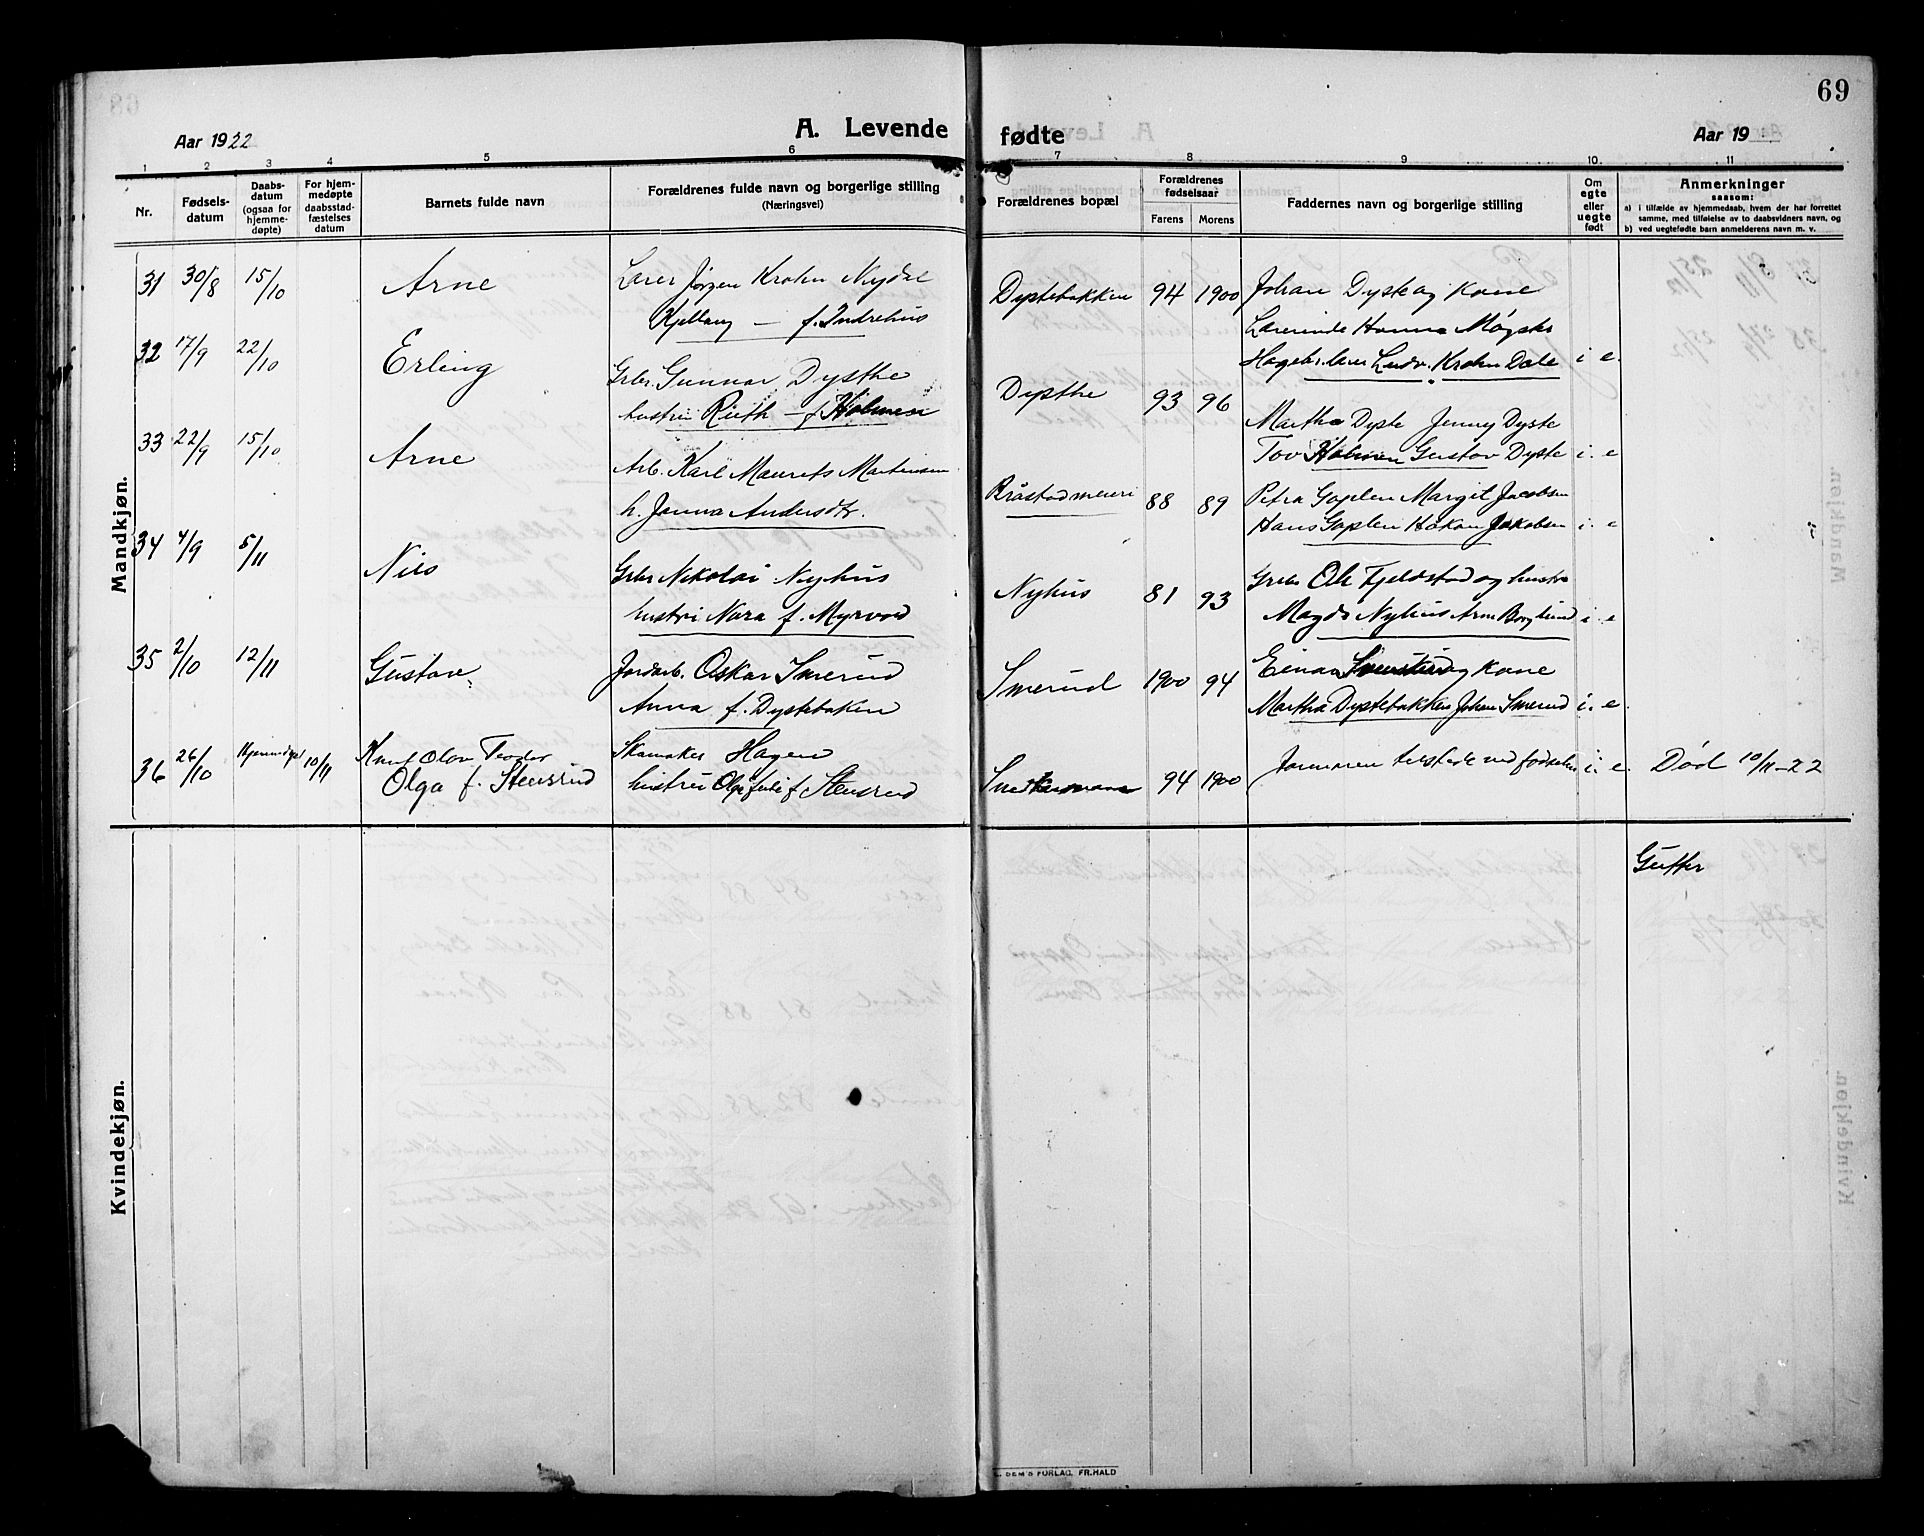 69
Aar 1922
A. Levende fødte
Aar 19
1 2 3 4 5 6 7 8 9 10 11
Nr.
Fødsels-
datum
Daabs-
datum
(ogsaa for
hjemme-
døpte)
For hjem-
medøpte
daabsstad-
fæstelses
datum
Barnets fulde navn
Forældrenes fulde navn og borgerlige stilling
(Næringsvei)
Forældrenes bopæl
Forældrenes
fødselsaar
Farens Morens
Faddernes navn og borgerlige stilling
Om
egte
eller
uegte
født
Anmerkninger
saasom:
a) i tilfælde av hjemmedaab, hvem der har forrettet
samme, med tilføielse av to daabsvidners navn, og
b) ved uegtefødte barn anmelderens navn m. v.
Mandkjøn.
31 30/8 15/10 Arne
Lærer Jörgen Krohn Nydal
Kjellaug — f. Indrehus
Dystebakken 94 1900
Johan Dyste og Kone
Lærerinde Hanna Møgster
Hagebr.lærer Ludv. Krohn Dale i e.
32 17/9 22/10 Erling
Grbr. Gunnar Dysthe
hustru Ruth — f. Holmen
Dysthe 93 96
Martha Dyste Jenny Dyste
Tov Holmen Gustav Dyste i. e
33 22/9 15/10 Arne
Arb. Karl Maurits Martinsen
h. Janna Andersdtr.
Råstad meieri 88 89
Petra Gaplen Margit Jacobsen
Hans Gaplen Hakon Jakobsen i. e
34 4/9 5/11 Nils
Grbr Nikolai Nyhus
hustru Nora f. Myrvold
Nyhus 81 93
Grbr Ole Fjeldstad og hustru
Magda Nyhus Arne Borglund i. e
35 2/10 12/11 Gustav
Jordarb. Oskar Smerud
Anna f. Dystebaken
Smerud 1900 94
Einar Smerud og Kone
Martha Dystebakken Johan Smerud i. e.
36 26/10 Hjemmedøpt 10/11 Knut Olav Teodor
Olga f. Stensrud
Skomaker Hagen
hustru Olga f. Stensrud
94 1900
Jormoren tilstede ved fødselen i. e. Død 10/11-22
Kvindekjøn.
Gutter
DEM'S FORLAG. FR. HALD